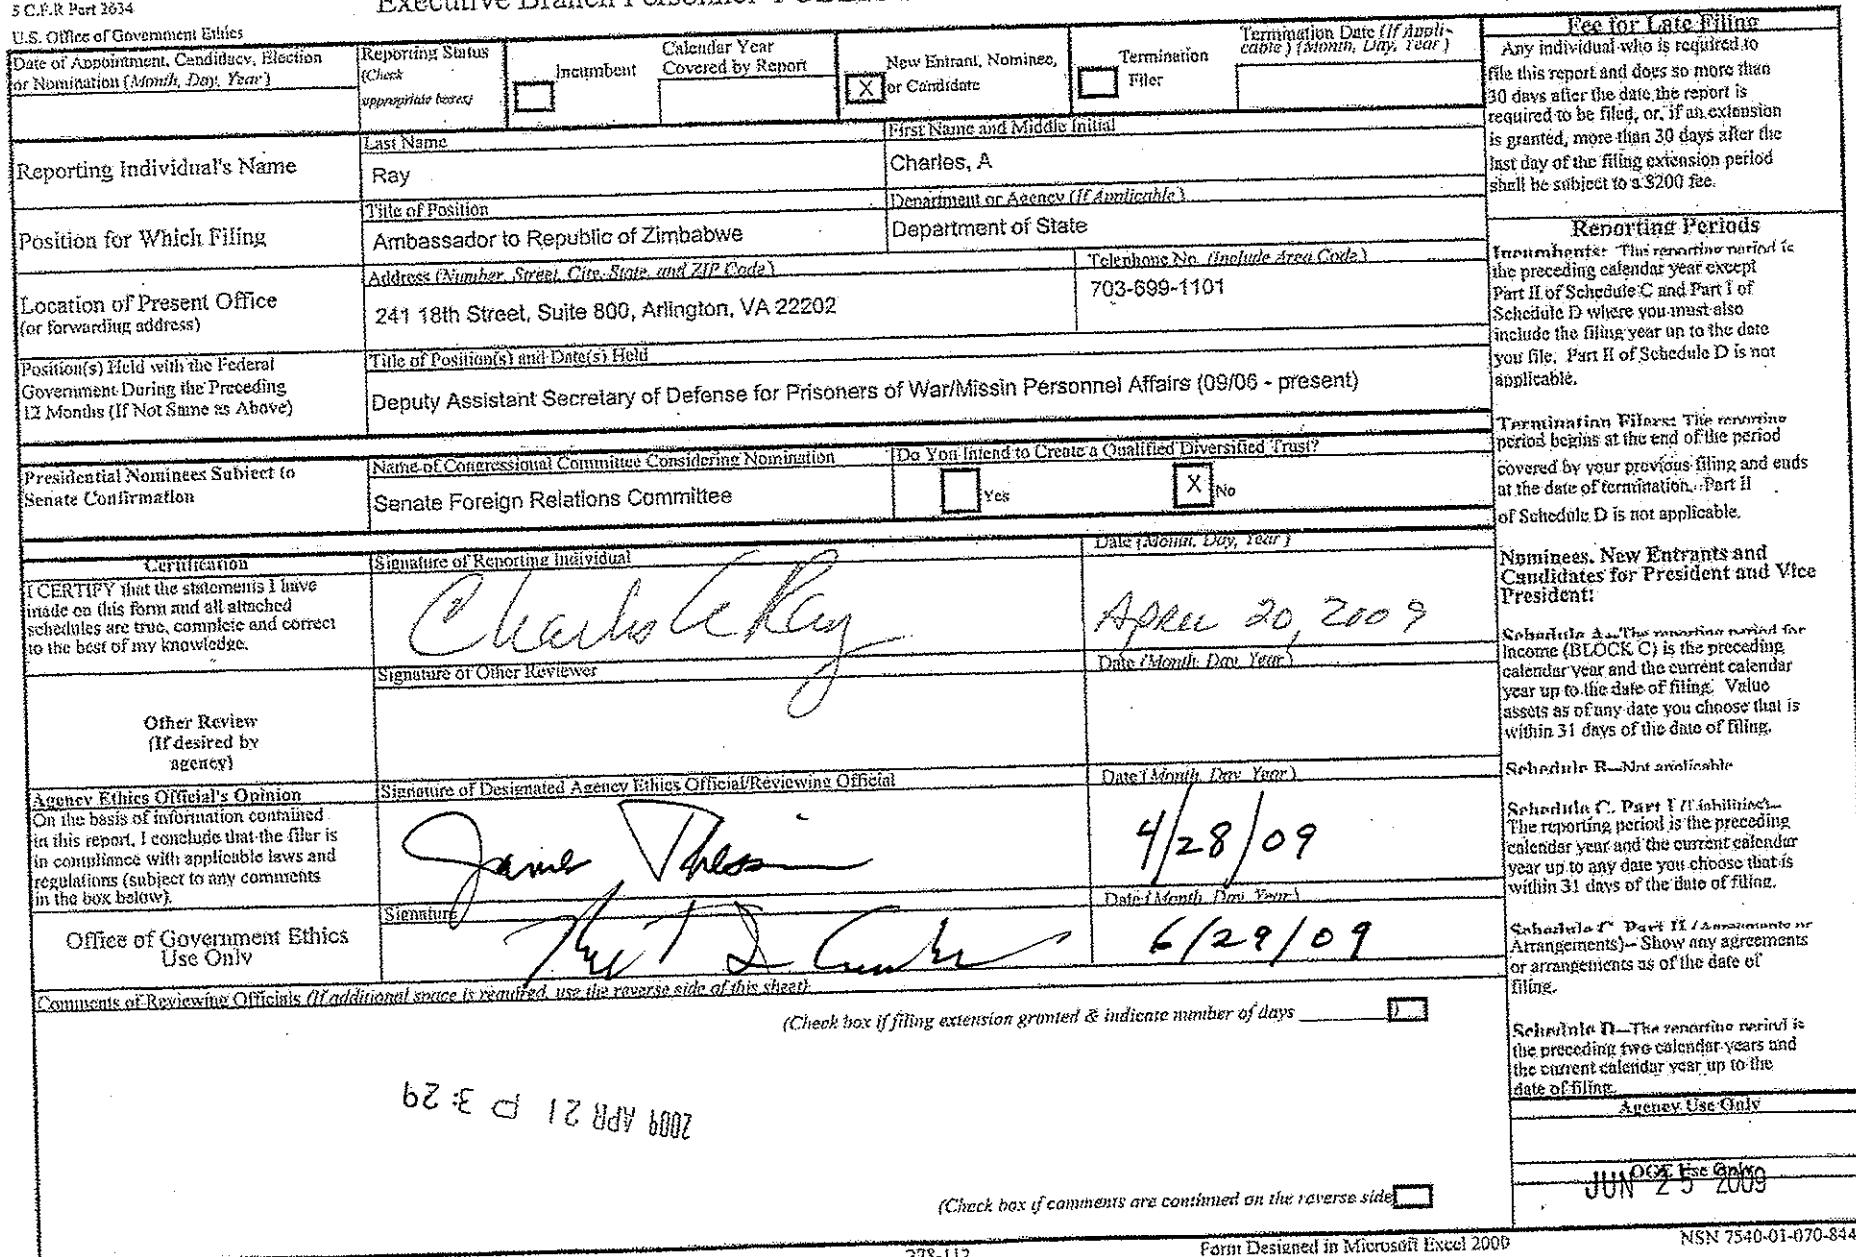 5 C.F.R Part 2634
U.S. Office of Government Ethics
Executive Branch Personnel
Date of Appointment, Candidacy, Election
or Nomination (Month, Day, Year)
Reporting Status
(Check
appropriate boxes)
Incumbent
Calendar Year
Covered by Report
X
New Entrant, Nominee,
or Candidate
Termination
Filer
Termination Date (If Appli-
cable) (Month, Day, Year)
Reporting Individual's Name
Last Name
Ray
First Name and Middle Initial
Charles, A
Position for Which Filing
Title of Position
Ambassador to Republic of Zimbabwe
Department or Agency (If Applicable)
Department of State
Location of Present Office
(or forwarding address)
Address (Number, Street, City, State, and ZIP Code)
241 18th Street, Suite 800, Arlington, VA 22202
Telephone No. (Include Area Code)
703-699-1101
Position(s) Held with the Federal
Government During the Preceding
12 Months (If Not Same as Above)
Title of Position(s) and Date(s) Held
Deputy Assistant Secretary of Defense for Prisoners of War/Missin Personnel Affairs (09/06 - present)
Presidential Nominees Subject to
Senate Confirmation
Name of Congressional Committee Considering Nomination
Senate Foreign Relations Committee
Do You Intend to Create a Qualified Diversified Trust?
Yes
X No
Certification
I CERTIFY that the statements I have
made on this form and all attached
schedules are true, complete and correct
to the best of my knowledge.
Signature of Reporting Individual
Charles A Ray
Date (Month, Day, Year)
APRIL 20, 2009
Other Review
(If desired by
agency)
Signature of Other Reviewer
Date (Month, Day, Year)
Agency Ethics Official's Opinion
On the basis of information contained
in this report, I conclude that the filer is
in compliance with applicable laws and
regulations (subject to any comments
in the box below).
Signature of Designated Agency Ethics Official/Reviewing Official
James
Date (Month, Day, Year)
4/28/09
Office of Government Ethics
Use Only
Signature
Date (Month, Day, Year)
6/29/09
Comments of Reviewing Officials (If additional space is required, use the reverse side of this sheet)
(Check box if filing extension granted & indicate number of days ________)
2009 APR 21 P 3:29
(Check box if comments are continued on the reverse side
Fee for Late Filing
Any individual who is required to
file this report and does so more than
30 days after the date the report is
required to be filed, or, if an extension
is granted, more than 30 days after the
last day of the filing extension period
shall be subject to a $200 fee.
Reporting Periods
Incumbents: The reporting period is
the preceding calendar year except
Part II of Schedule C and Part I of
Schedule D where you must also
include the filing year up to the date
you file. Part II of Schedule D is not
applicable.
Termination Filers: The reporting
period begins at the end of the period
covered by your previous filing and ends
at the date of termination. Part II
of Schedule D is not applicable.
Nominees, New Entrants and
Candidates for President and Vice
President:
Schedule A--The reporting period for
Income (BLOCK C) is the preceding
calendar year and the current calendar
year up to the date of filing. Value
assets as of any date you choose that is
within 31 days of the date of filing.
Schedule B--Not applicable
Schedule C, Part I (Liabilities)--
The reporting period is the preceding
calendar year and the current calendar
year up to any date you choose that is
within 31 days of the date of filing.
Schedule C, Part II (Agreements or
Arrangements)-- Show any agreements
or arrangements as of the date of
filing.
Schedule D--The reporting period is
the preceding two calendar years and
the current calendar year up to the
date of filing.
Agency Use Only
OGE Use Only
JUN 25 2009
278-112
Form Designed in Microsoft Excel 2000
NSN 7540-01-070-844